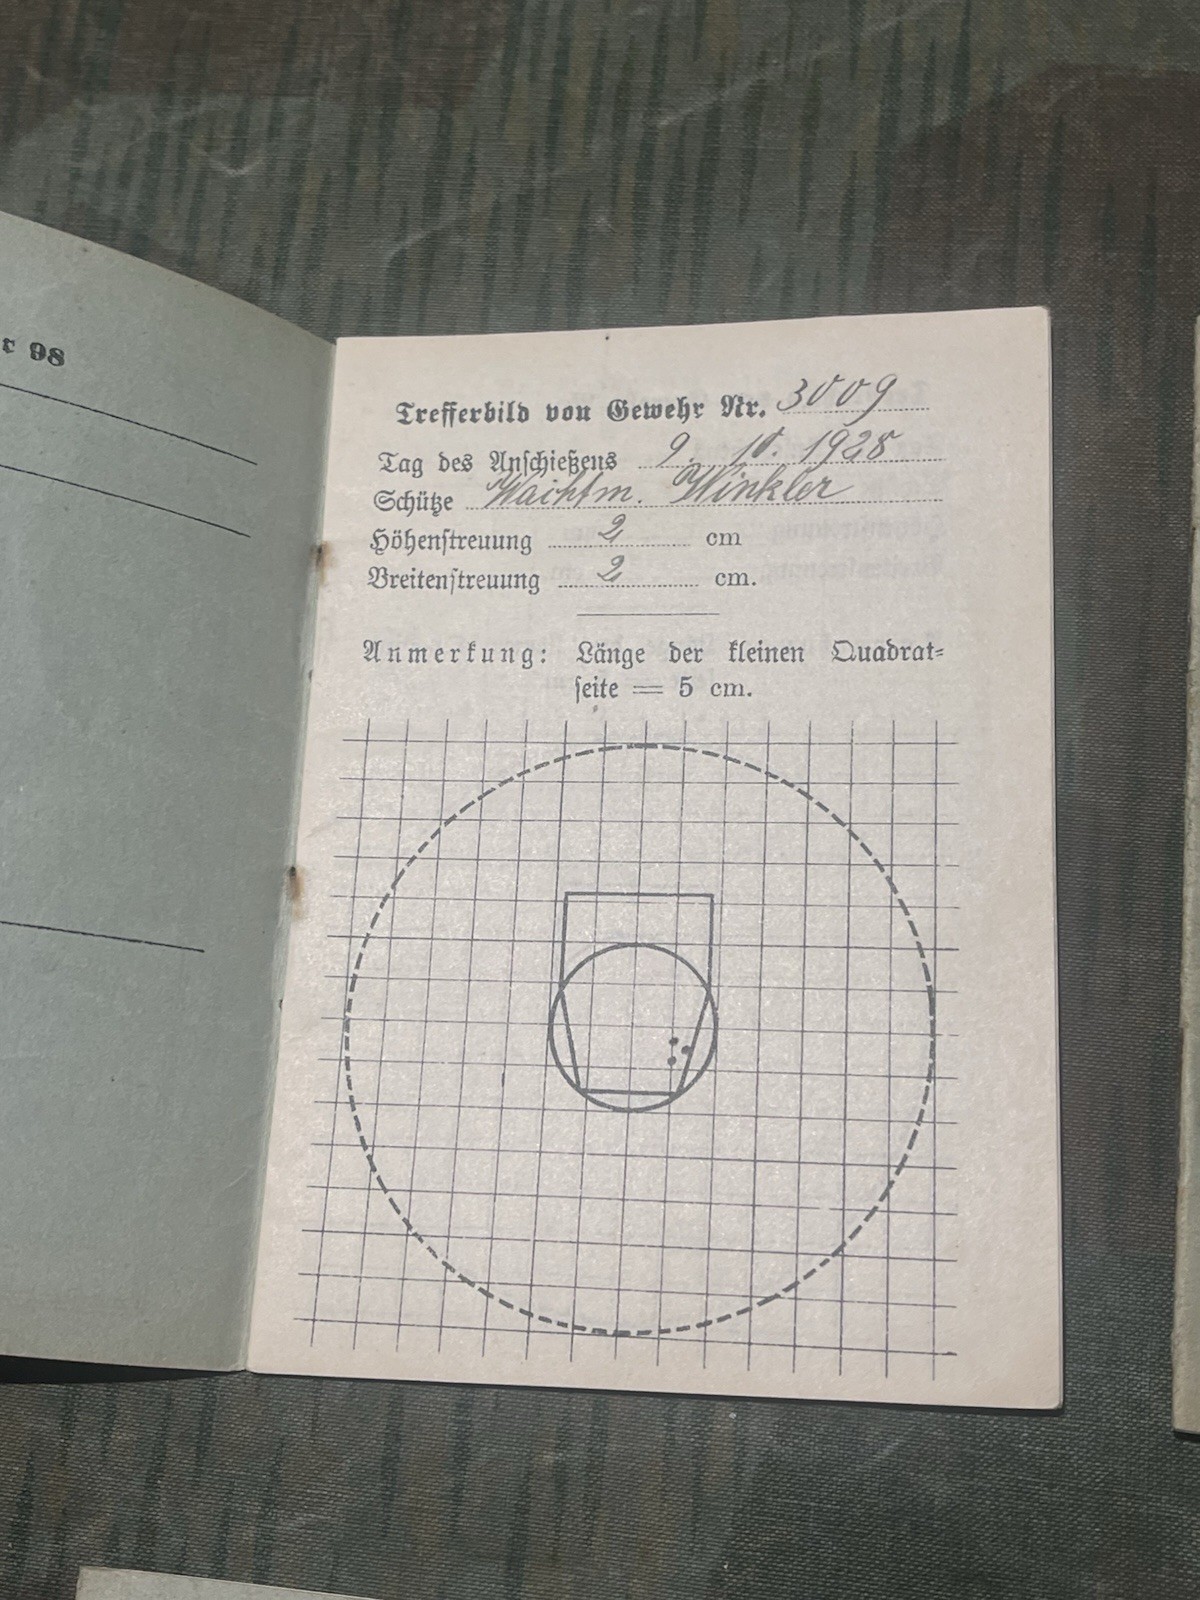 r 98
Trefferbild von Gewehr Nr. 3009
Tag des Anschießens 9. 10. 1928
Schütze Wachtm. Winkler
Höhenstreuung 2 cm
Breitenstreuung 2 cm.
Anmerkung: Länge der kleinen Quadrat=
seite = 5 cm.